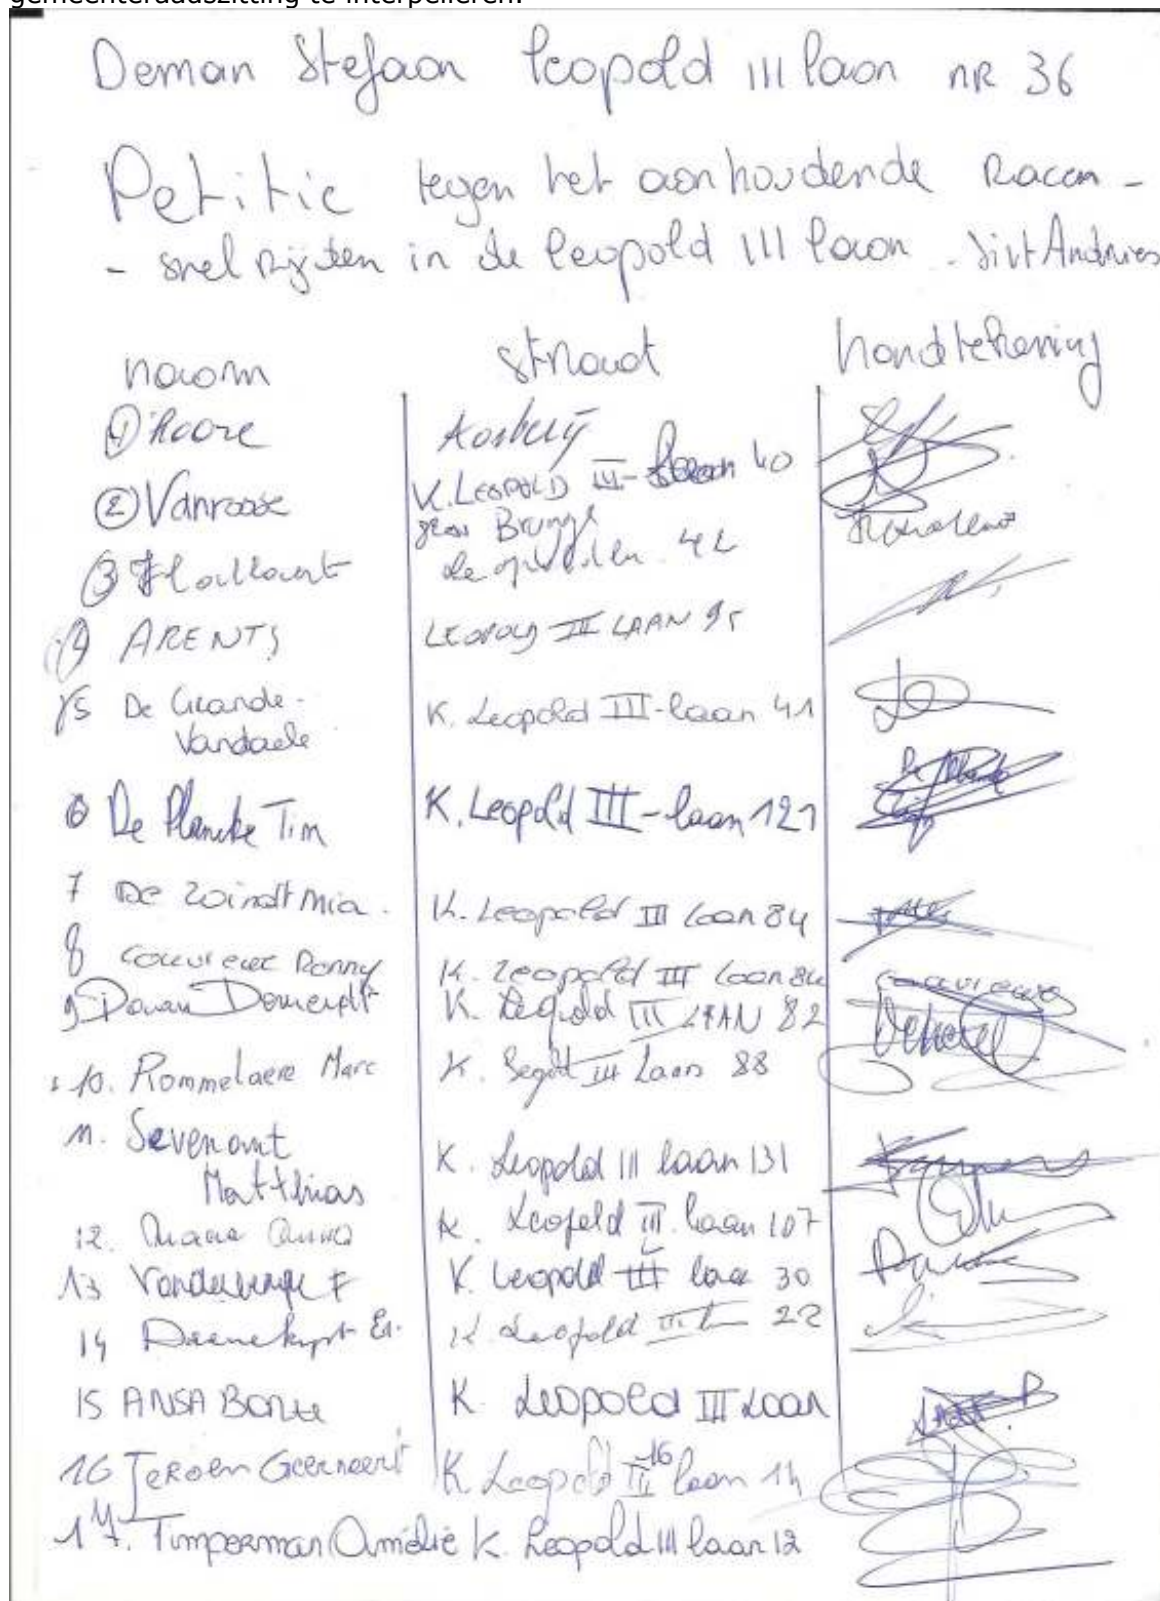 gemeenteraadszitting te interpelleren.
Deman Stefaan Leopold III laan nR 36
Petitie tegen het aanhoudende Racen -
- snel Rijden in de Leopold III laan - Sint Andries
naam straat handtekening
① Roore
② Vanroose K. LEOPOLD III-laan 40
8200 Brugge
③ 42
4 ARENTS LEOPOLD III LAAN 95
5 De Grande- K. Leopold III-laan 41
Vandaele
6 De Plancke Tim K. Leopold III-laan 121
7 De Windt Mia. K. Leopold III laan 84
8 Ronny K. Leopold III laan 84
9 K. Leopold III LAAN 82
10. Rommelaere Marc K. Leopold III Laan 88
11. Sevenant
Matthias K. Leopold III laan 131
12. K. Leopold III laan 107
13 F K. Leopold III laan 30
14 K Leopold III L 22
15 ANSA K Leopold III Laan
16 Jeroen Geernaert K Leopold III laan 14
17. Timperman Amélie K. Leopold III laan 12